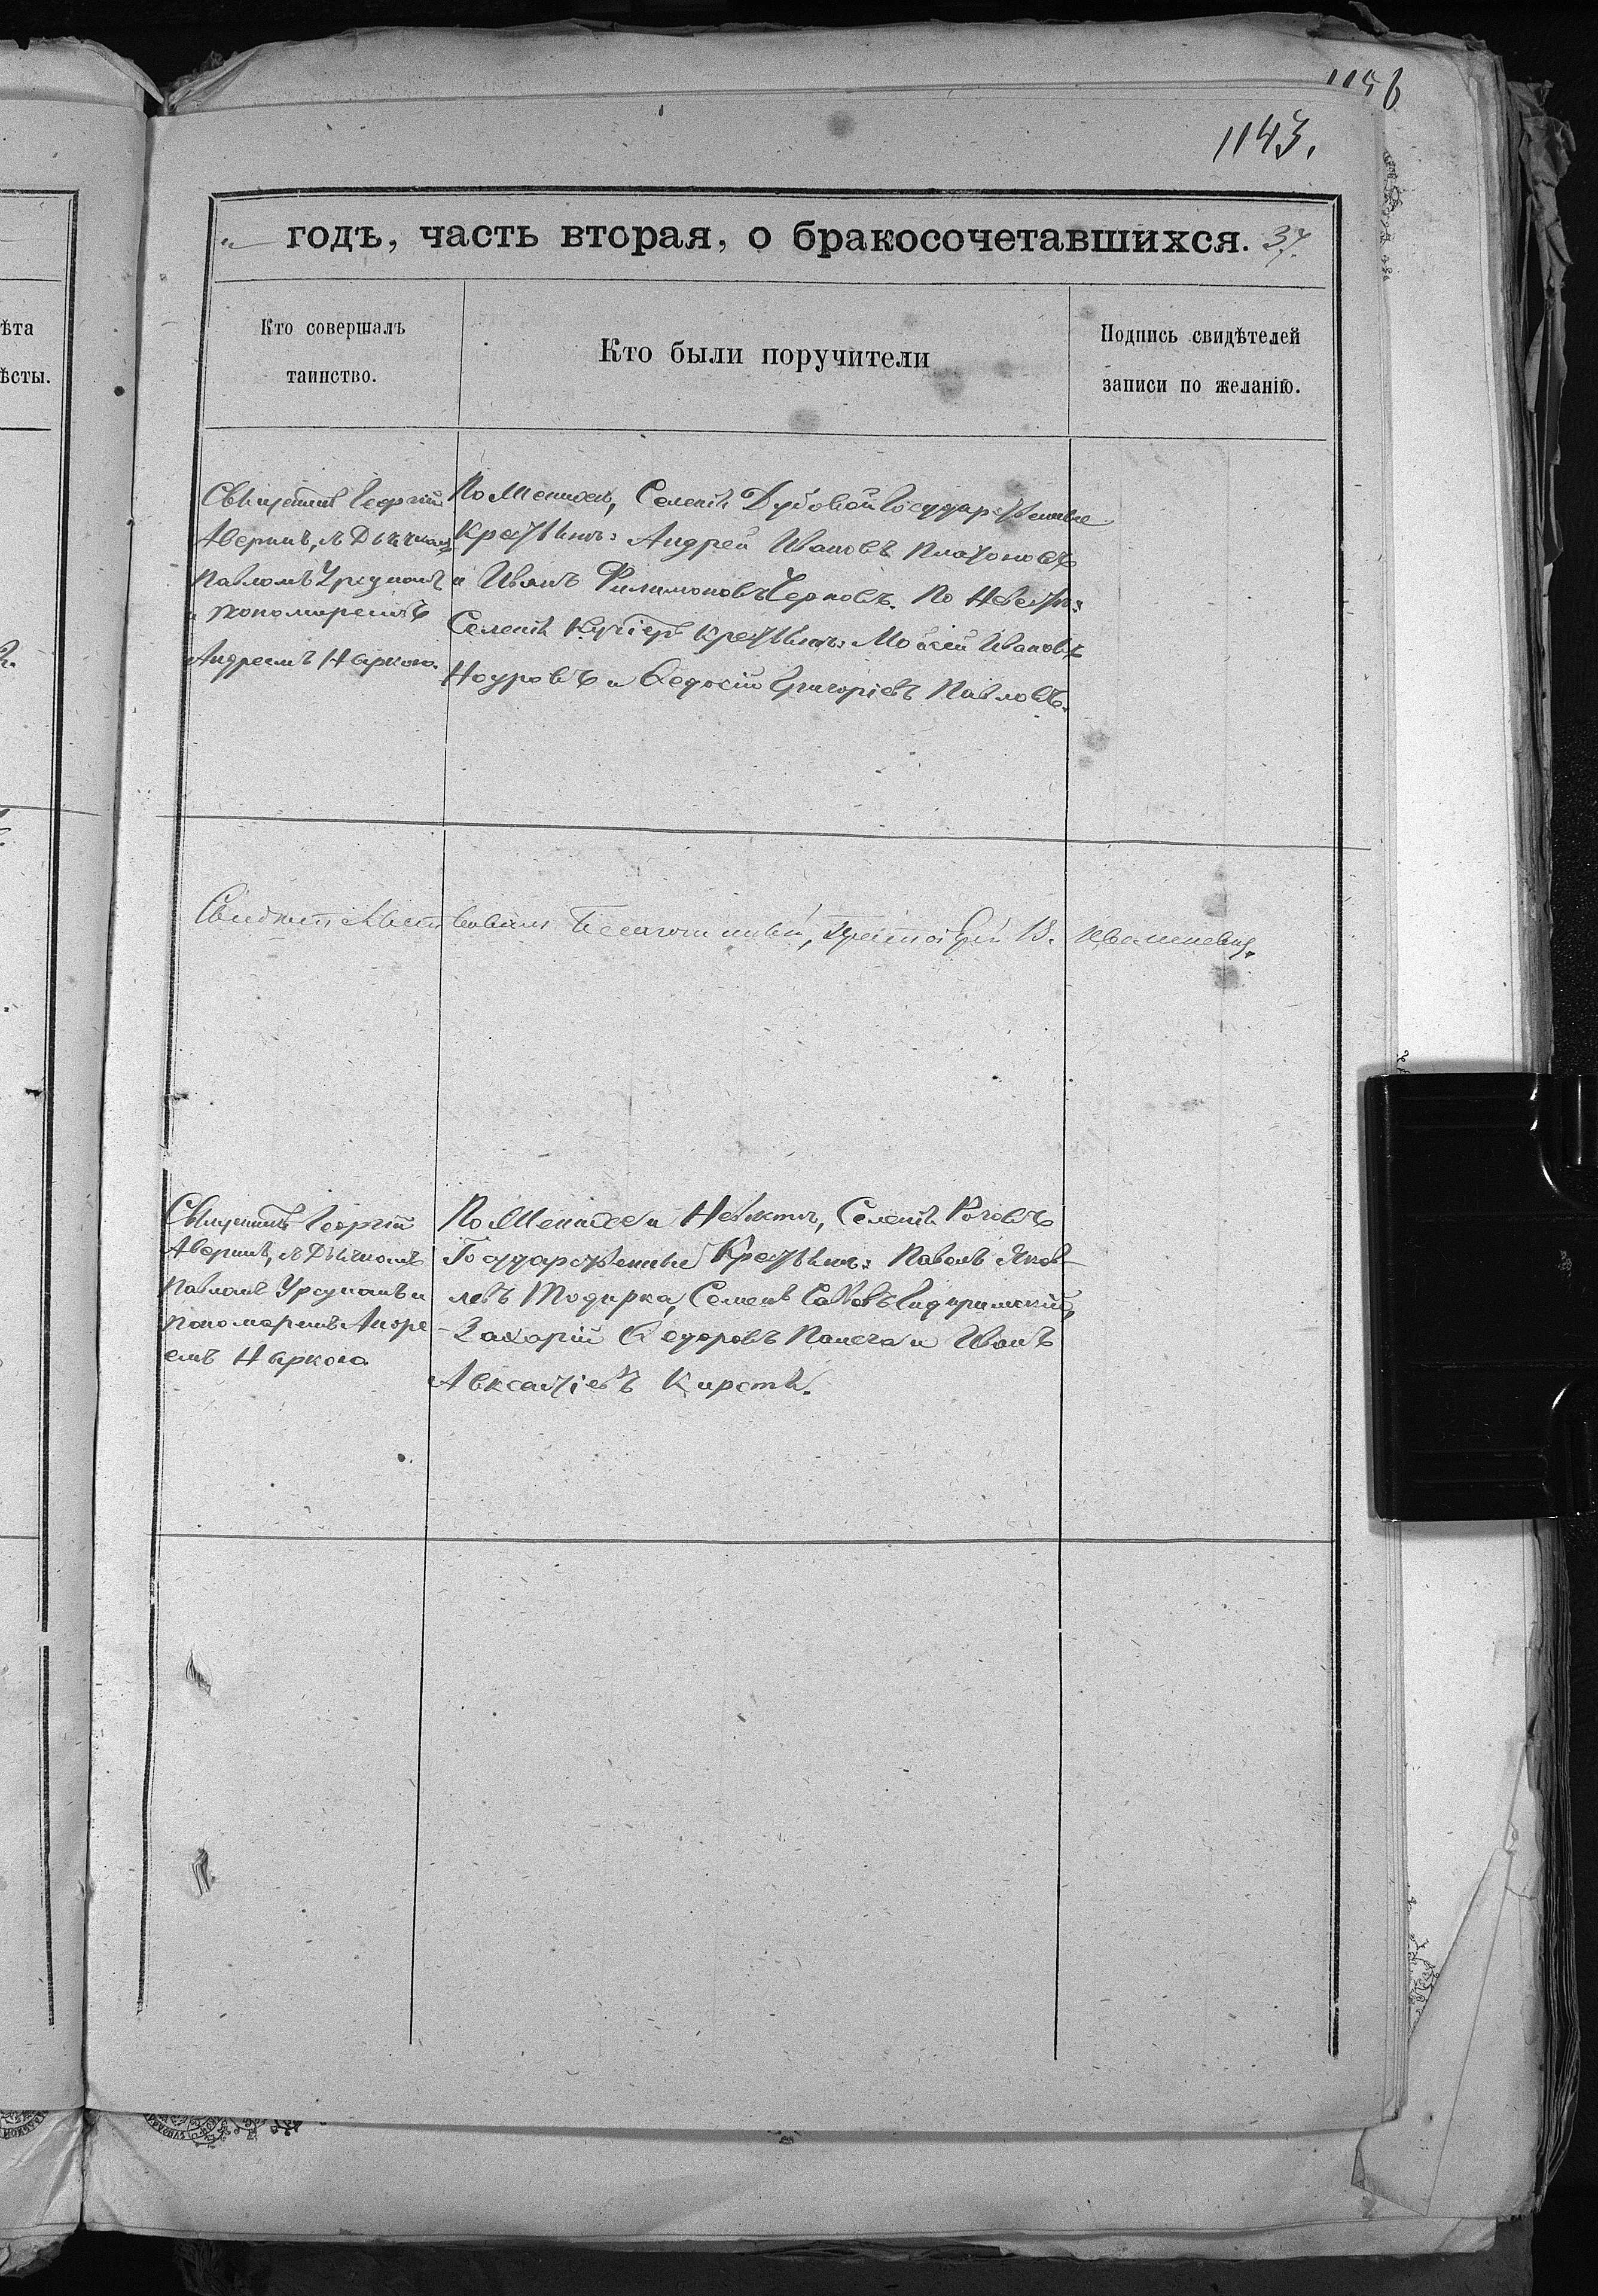 1156
1143.
„ — годъ, часть вторая, о бракосочетавшихся. 37.
ѣта
ѣсты.
Кто совершалъ
таинство.
Кто были поручители
Подпись свидѣтелей
записи по желанію.
Священникъ Георгій
Аверинъ, съ Дьячкомъ
Павломъ Урсуломъ
и пономаремъ
Андреемъ Няркога
По Женихѣ, Селенія Дубовой Государственные
Крестьяне: Андрей Ивановъ Платоновъ
и Иванъ Филимоновъ Черновъ. По Невѣстѣ:
Селенія Кучіеръ Крестьяне: Мойсей Ивановъ
Нодровъ и Ѳедосій Григоріевъ Павловъ.
Свидѣтельствовалъ Благочинный, Протоіерей В.
Священникъ Георгій
Аверинъ, съ Дьячкомъ
Павломъ Урсуломъ и
пономаремъ Андре
емъ Няркога
По Женихѣ и Невѣстѣ, Селенія Роговъ
Государственные Крестьяне: Павелъ Яков-
левъ Тодирка, Семенъ Саввовъ Гидиримскій,
Захарій Ѳедоровъ Папега и Иванъ
Авксентіевъ Кирстя.